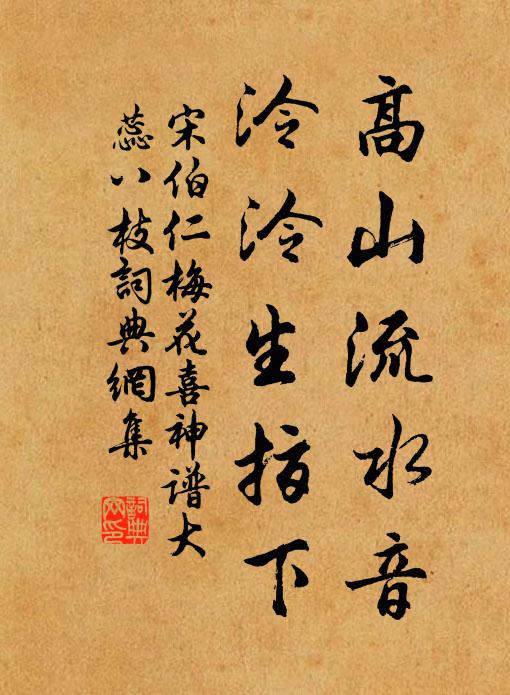 高山流水音
泠泠生指下
宋伯仁梅花喜神譜大
蕊八枝詞典網集
詞典
网印